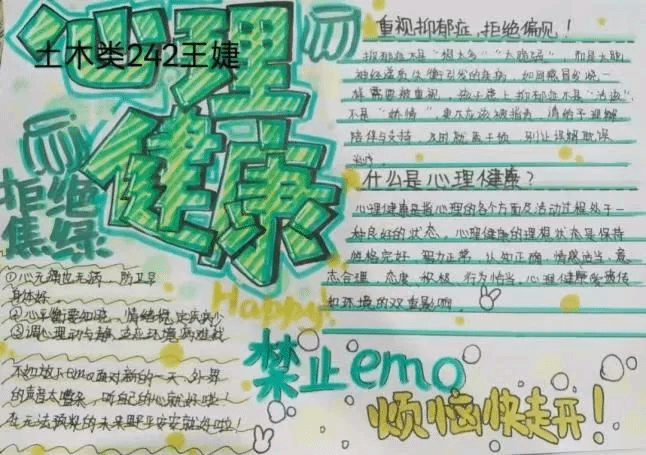 土木类242王婕
心理
健康
拒绝
焦绿
重视抑郁症，拒绝偏见！
抑郁症不是"想太多""太脆弱"，而是大脑
神经递质失衡引发的疾病，如同感冒发烧一
样需要被重视，孩子患上抑郁症不是
不是"矫情"，更不应该被指责，请给予理解
陪伴与支持，及时就医干预，别让误解耽误
治疗。
什么是心理健康？
心理健康是指心理的各个方面及活动过程处于一
种良好的状态，心理健康的理想状态是保持
性格完好、智力正常、认知正确、情感适当、意
志合理、态度、积极、行为恰当，心理健康受遗传
和环境的双重影响。
①心无痛也无病，防卫早
身体炼
②心平衡要知晓，情绪稳定疾病少
③调心理动与静，适应环境
Happy
不如放下emo面对新的一天，外界
的声音太嘈杂，听自己的心就好啦！
在无法预料的未来里平平安安就好啦！
禁止emo
烦恼快走开！